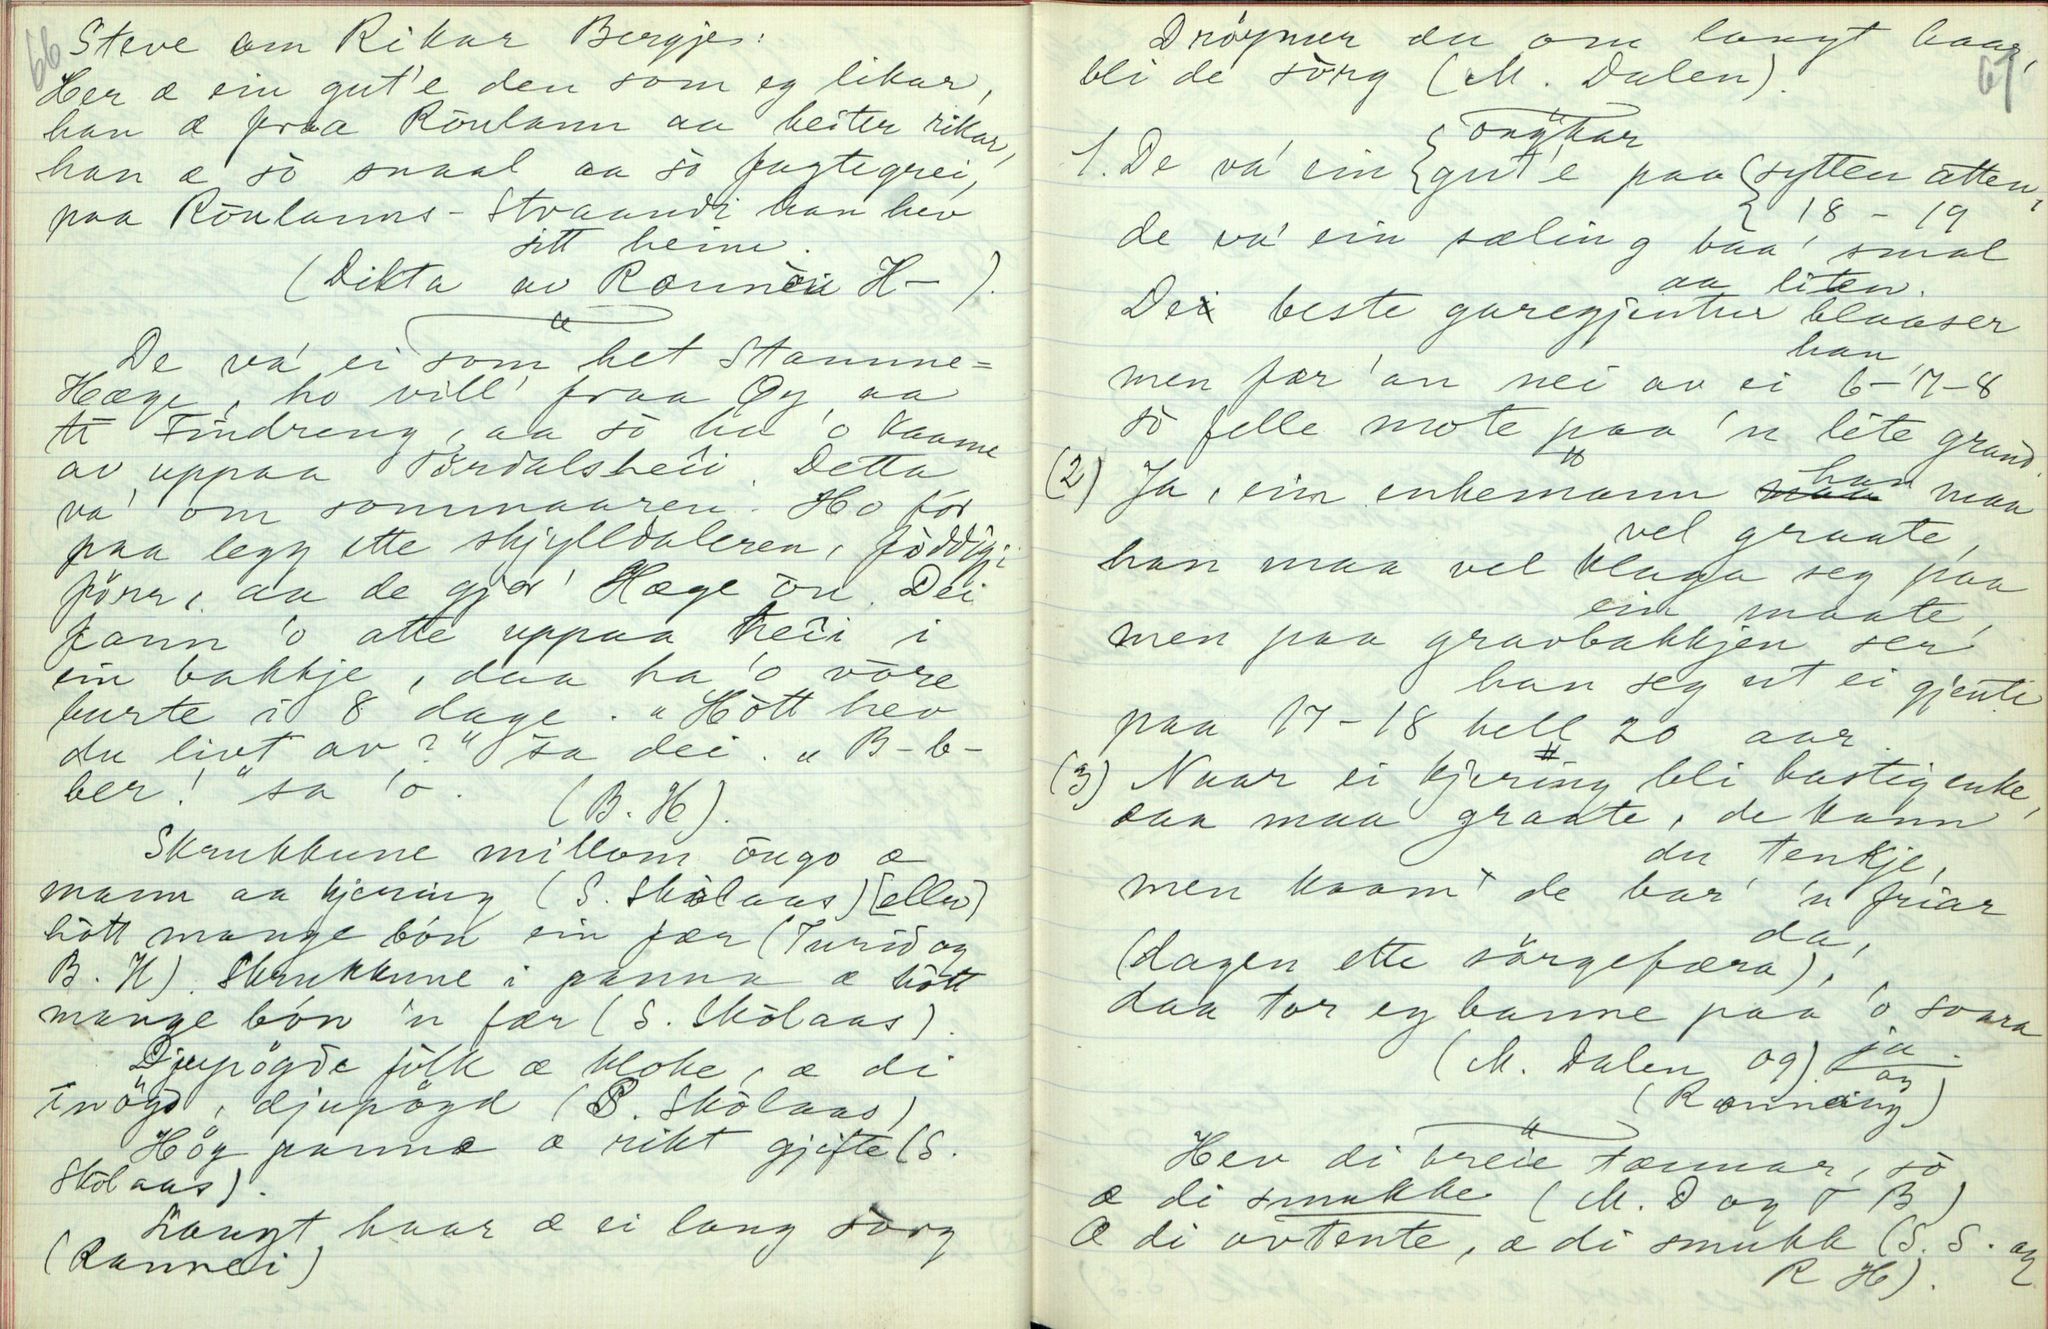 66
Steve om Rikar Bergje:
Her æ ein gut'e den som eg likar,
han æ fraa Röulann aa heiter rikar,
han æ sò snaal aa sò fagtegrei,
paa Röulanns-Straandi han hev
sitt heim.
(Dikta av Rannei H-).
De va' ei som het Stamne=
Hæge, ho vill' fraa Øy aa
ti Findreng, aa sò ha 'o kaame
av uppaa Tördalsheii. Detta
va' om sommaaren. Ho för
paa legg ette skjylldaleren,
förr, aa de gjor' Hæge òu. Dei
fann 'o atte uppaa heii i
ein bakkje, daa ha 'o vòre
burte i 8 dage. "Hòtt hev
du livt av?" sa dei. "B-b-
ber!" sa 'o.
(B. H).
Skrukkune millom öugo æ
mann aa kjering (S. Skòlaas) [eller]
hòtt mange bón ein fær (Turid og
B. H). Skrukkune i panna æ hòtt
mange bón 'n fær (S. Skòlaas).
Djupögde fòlk æ kloke, æ di
inögd, djupögd (S. Skòlaas)
Hög panne æ rikt gjifte (S.
Skòlaas).
Langt haar æ ei lang sòrg
(Rannei)
67
Dröymer du om langt haar,
bli de sòrg (M. Dalen).
ongkar
1. De va' ein { gut'e paa { sytten atten,
18 - 19
de va' ein sæling baa' smal
aa liten.
De beste garegjentur blaaser
han
men fær 'an nei av ei 6-7-8
sò felle mote paa 'n lite grand.
(2) Ja, ein enkemann han maa
vel graate,
han maa vel klaga seg paa
ein maate,
men paa gravbakkjen ser
han seg ut ei gjente
paa 17-18 hell 20 aar.
(3) Naar ei kjering bli hastig enke,
saa maa graate, de kann
du tenkje,
men kaam' de bar' 'n friar
da,
(dagen ette sörgefæra),
daa tor eg banne paa 'o svara
ja.
(M. Dalen og)
og
(Rannei)
Hev di breie tænnar, sò
æ di smukke (M. D og T B)
Æ di avtente, æ di smukk (S. S. og
R H).